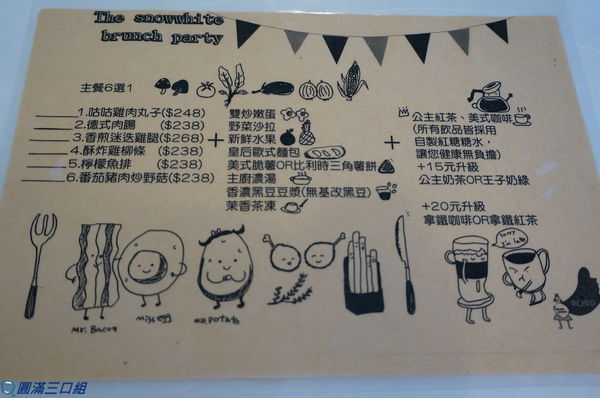 The snowwhite
brunch party
主餐6選1
1.咕咕雞肉丸子($248)
2.德式肉腸 ($238)
3.香煎迷迭雞腿($268)
4.酥炸雞柳條 ($238)
5.檸檬魚排 ($238)
6.番茄豬肉炒野菇($238)
+
雙炒嫩蛋
野菜沙拉
新鮮水果
皇后歐式麵包
美式脆薯OR比利時三角薯餅
主廚濃湯
香濃黑豆豆漿(無基改黑豆)
茉香茶凍
+
公主紅茶、美式咖啡
(所有飲品皆採用
自製紅糖糖水,
讓您健康無負擔)
+15元升級
公主奶茶OR王子奶綠
+20元升級
拿鐵咖啡OR拿鐵紅茶
Sorry
I'm late
Mr. Bacon
Miss egg
Mr. Potato
圓滿三口組